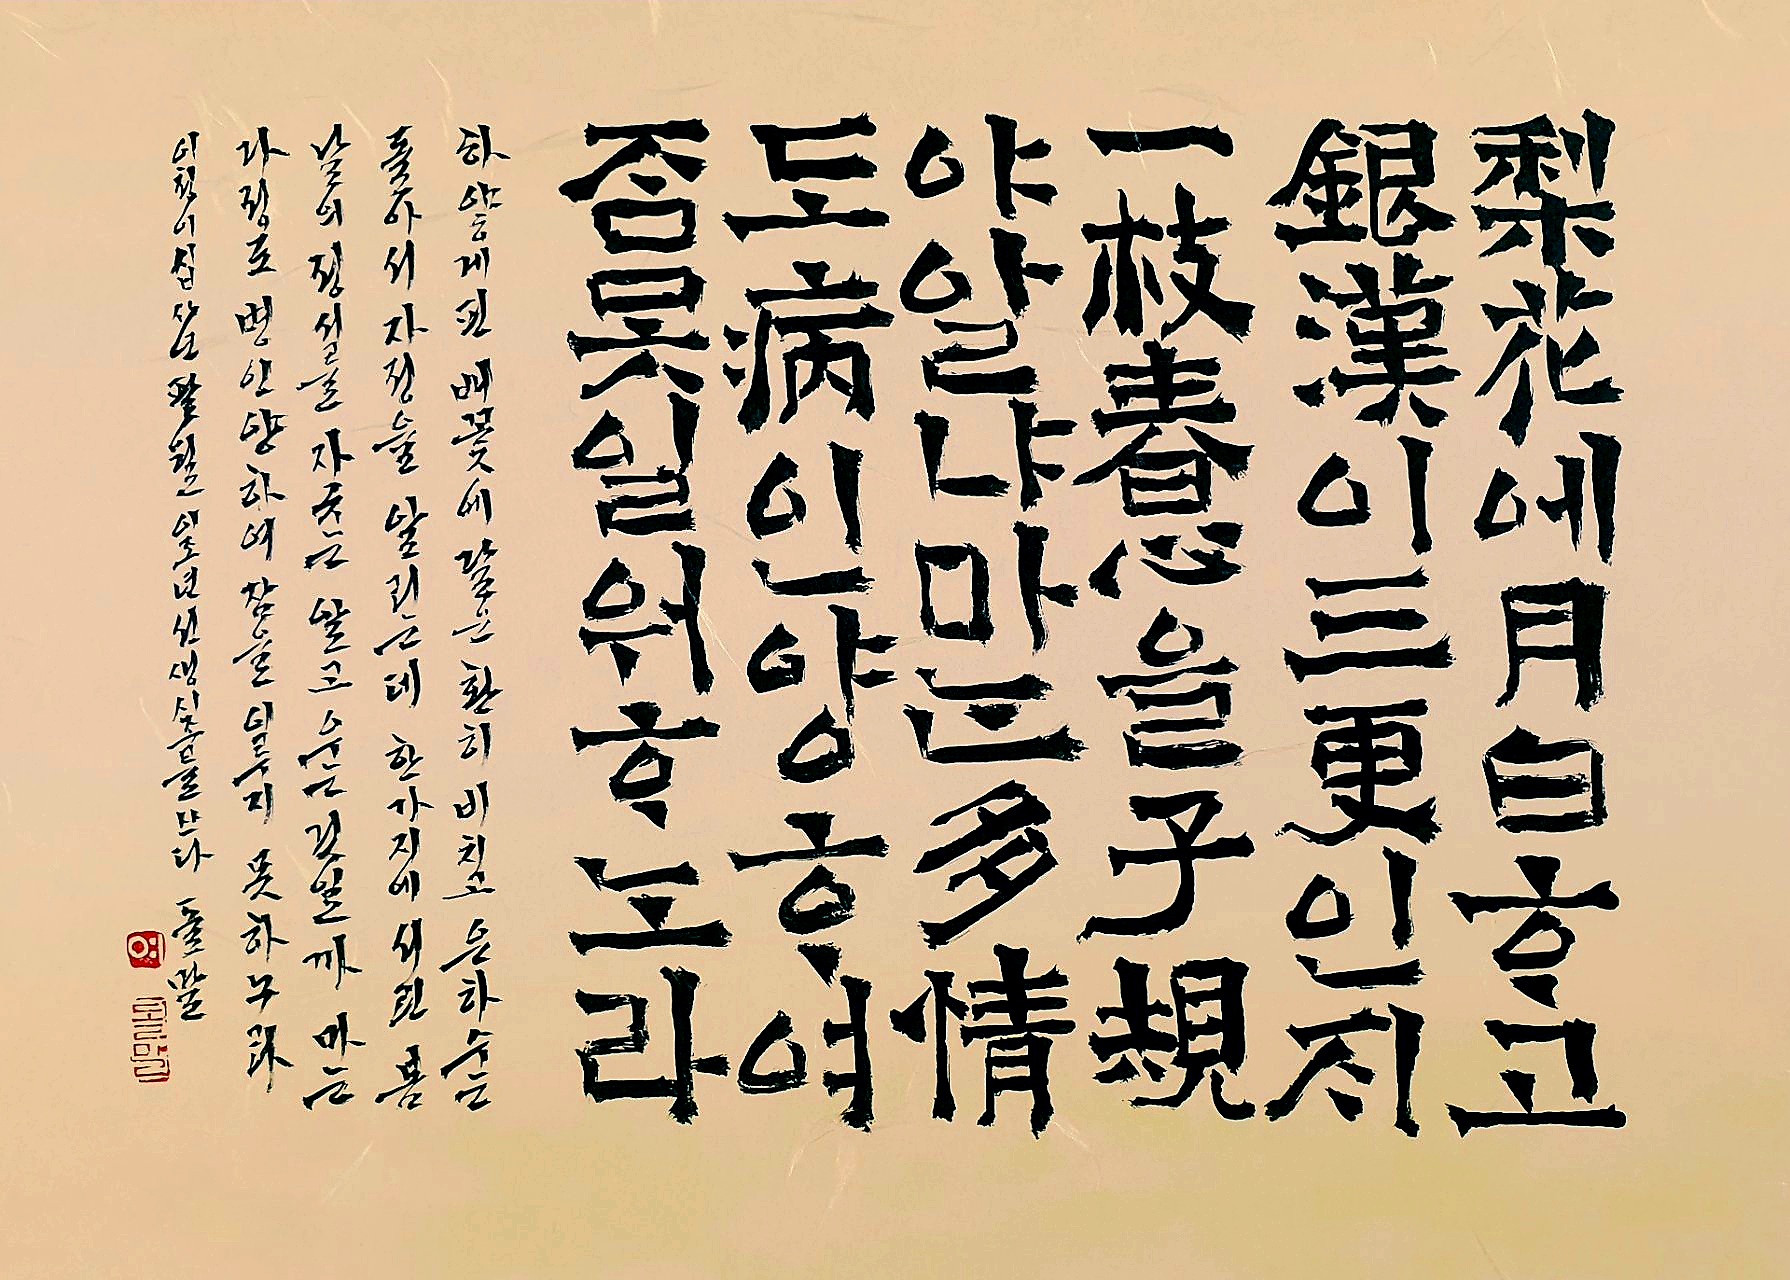 梨花에月白ᄒᆞ고
銀漢이三更인지
一枝春心을子規
야알냐마는多情
도病인양ᄒᆞ여
ᄌᆞᆷ못일워ᄒᆞ노라
하얗게 핀 배꽃에 달은 환히 비치고 은하수는
돌아서 자정을 알리는데 한 가지에 서린 봄
날의 정서를 자규는 알고 우는 것일까 마는
다정도 병인 양하여 잠을 이루지 못하누라
이천이십사년 팔월 이조년선생 시조를 쓰다 돌뫌